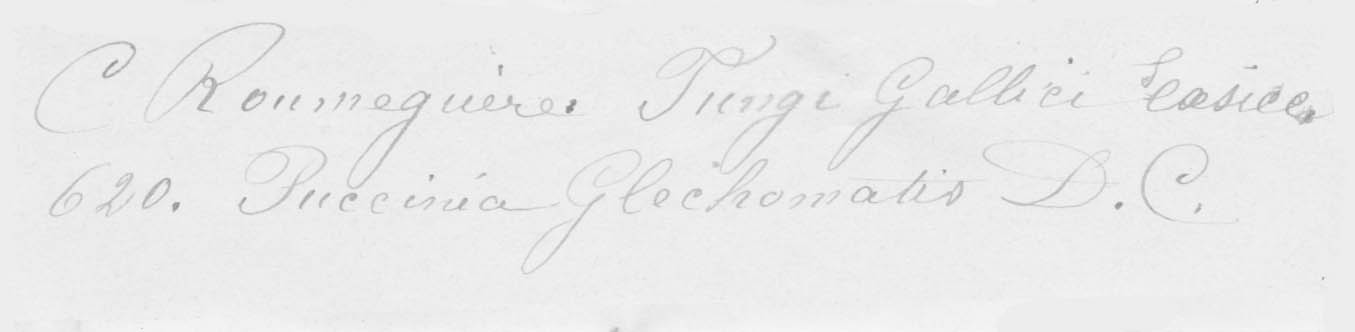 C Roumeguère. Fungi Gallici
620. Puccinia Glechomatis D.C.